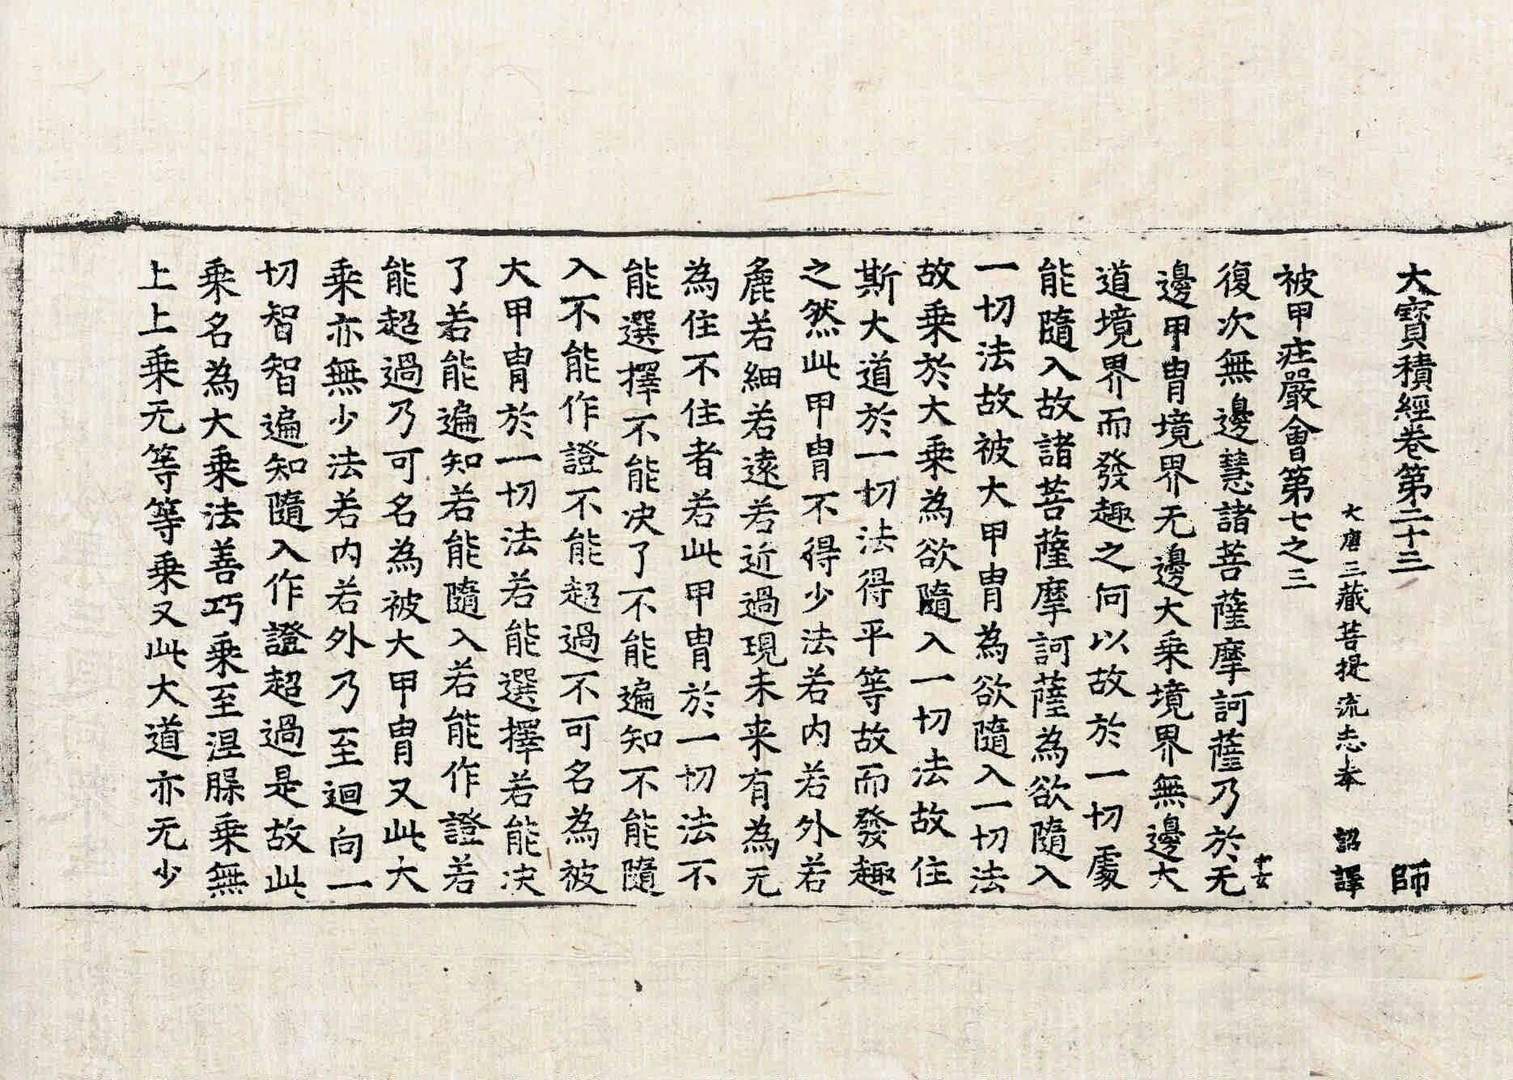 大寶積經卷第二十三 師
大唐三藏菩提流志奉 詔譯
被甲庄嚴會第七之三
復次無邊慧諸菩薩摩訶薩乃於无
邊甲冑境界无邊大乘境界無邊大
道境界而發趣之何以故於一切處
能隨入故諸菩薩摩訶薩為欲隨入
一切法故被大甲冑為欲隨入一切法
故乘於大乘為欲隨入一切法故住
斯大道於一切法得平等故而發趣
之然此甲冑不得少法若内若外若
麁若細若遠若近過現未来有為无
為住不住者若此甲冑於一切法不
能選擇不能决了不能遍知不能隨
入不能作證不能超過不可名為被
大甲冑於一切法若能選擇若能决
了若能遍知若能隨入若能作證若
能超過乃可名為被大甲冑又此大
乘亦無少法若内若外乃至迴向一
切智智遍知隨入作證超過是故此
乘名為大乘法善巧乘至涅槃乘無
上上乘无等等乘又此大道亦无少